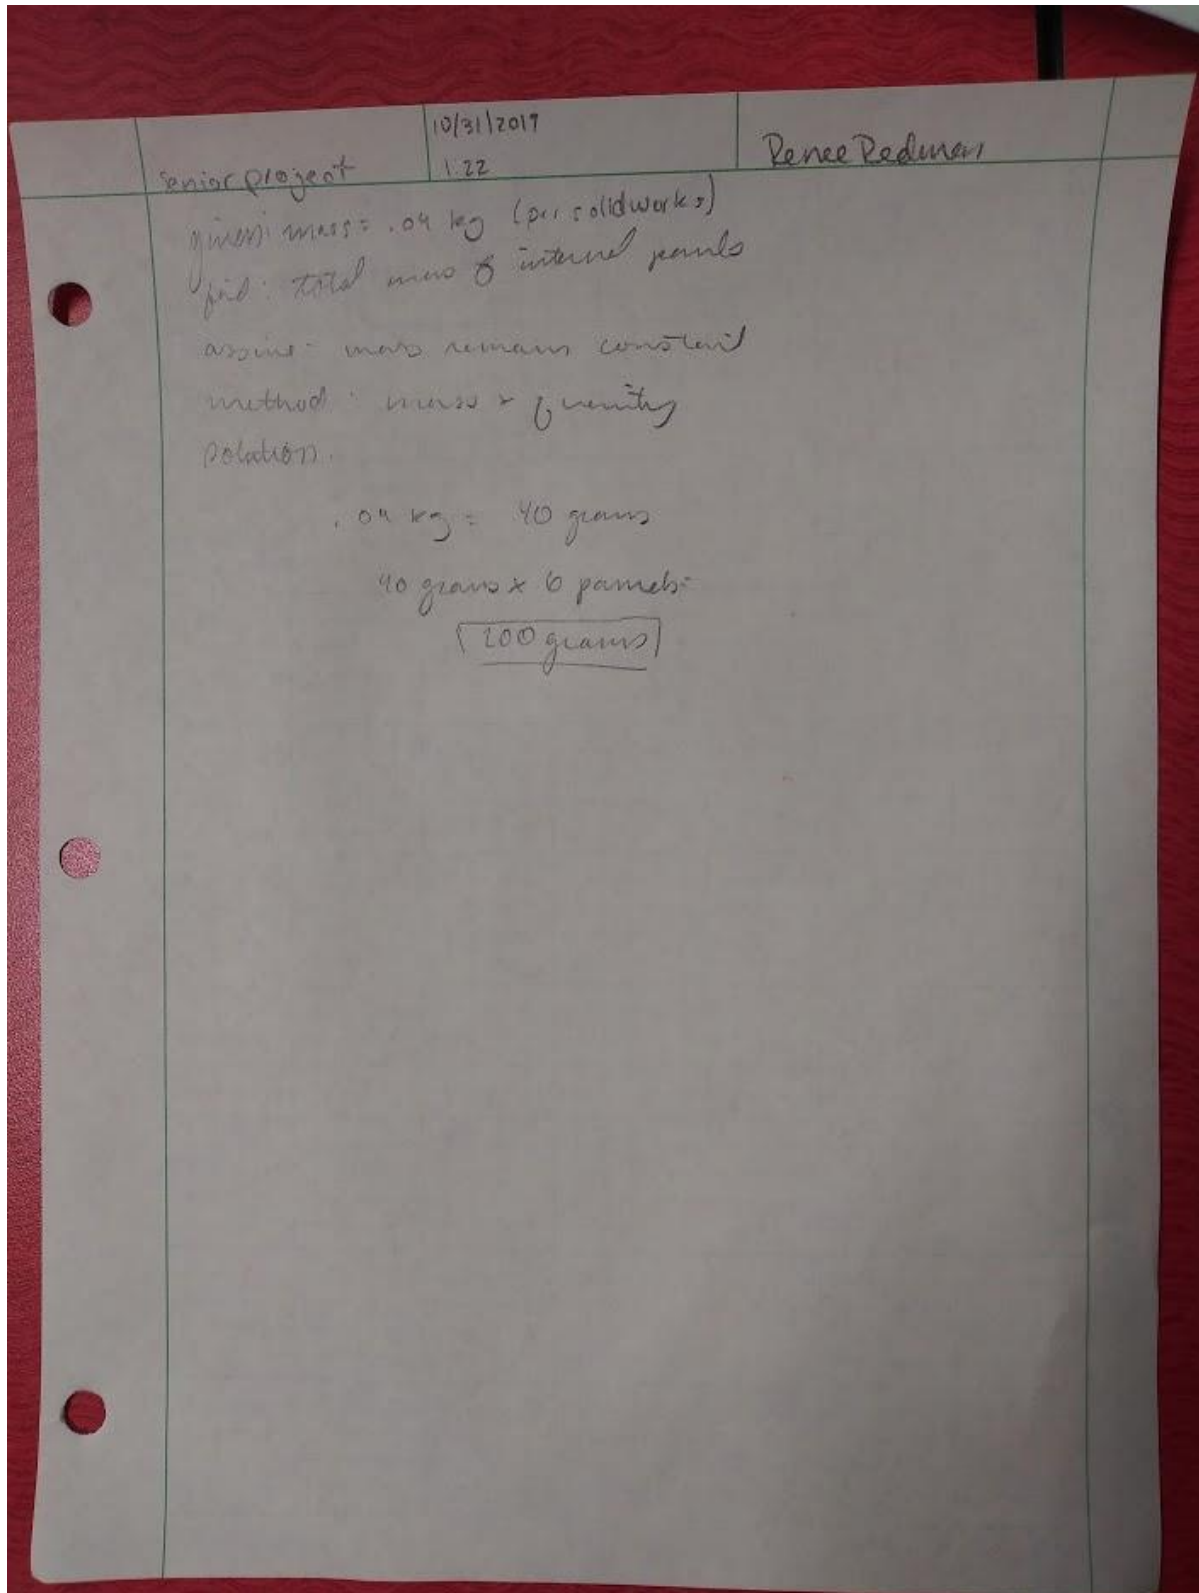 Senior project
10/31/2019
1.22
Renee Redman
given: mass = .04 kg (per solidworks)
find: total mass of internal panels
assume: mass remains constant
method: mass x quantity
solution.
.04 kg = 40 grams
40 grams x 6 pannels=
200 grams